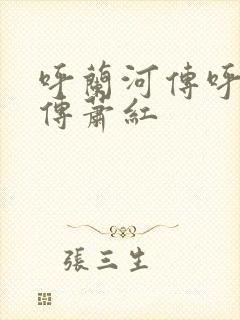 呼蘭河傳呼
傳蕭紅
張三生